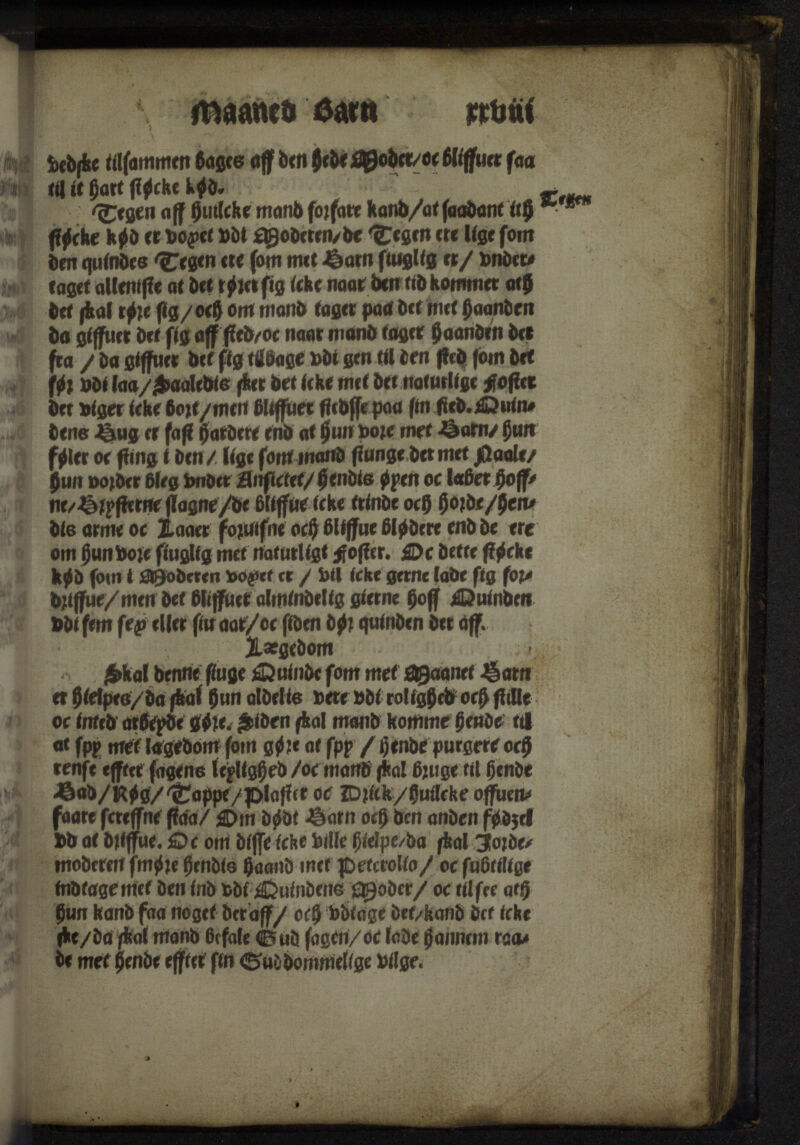 Maaned Barn xxviii
vedske tilsammen bages aff den hede Moder/oc bliffuer saa
til it hart støcke kød.
Tegen aff huilcke mand forfare kand/at saadant itħ
støcke kød er voxet vdi Moderen/de Tegen ere lige som
den quindes Tegen ere som met Barn siuglig er/ vnder-
taget alleniste at det rører sig icke naar den tid kommer atħ
det skal røre sig/ocħ om mand tager paa det met haanden
da giffuer det sig aff sted/oc naar mand tager haanden der
fra / da giffuer det sig tilbage vdi gen til den sted som det
før vdi laa/Saaledis sker det icke met det naturlige Foster
det viger icke bort/men bliffuer stedsse paa sin sted. Quin-
dens Bug er fast hardere end at hun vore met Barn/ hun
føler oc sting i den/ lige som mand stunge det met Naale/
hun vorder bleg vnder Ansictet/ hendis øpen oc læber hoff-
ne/Brysterne slagne/de bliffue icke trinde ocħ horde/hen-
dis arme oc Laaer foruisne ocħ bliffue blødere end de ere
om hun vore siuglig met naturligt Foster. Oc dette støcke
kød som i Moderen voxet er / vil icke gerne lade sig for-
driffue/men det bliffuer almindelig gierne hoff Quinden
vdi fem sex eller siu aar/oc siden dør quinden der aff.
Lægedom
Skal denne siuge Quinde som met Maanet Barn
er hielpes/da skal hun aldelis vere vdi rolighed ocħ stille
oc inted arbeyde gøre. Siden skal mand komme hende til
at spy met lægedom som gøre at spy / hende purgere ocħ
rense effter sagens leylighed /oc mand skal bruge til hende
Bad/Røg/Tappe/Plaster oc Drick/huilcke offuen-
faare screffne staa/ Om dødt Barn ocħ den anden fødzel
vd at driffue. Oc om disse icke ville hielpe/da skal Jorde-
moderen smøre hendis haand met Petcrolio / oc subtilige
indtage met den ind vdi Quindens Moder/ oc tilsee atħ
hun kand faa noget der aff/ ocħ vdtage det/kand det icke
ske/da skal mand befale Gud sagen/ oc lade hannem raa-
de met hende effter sin Guddommelige vilge.
Tegen